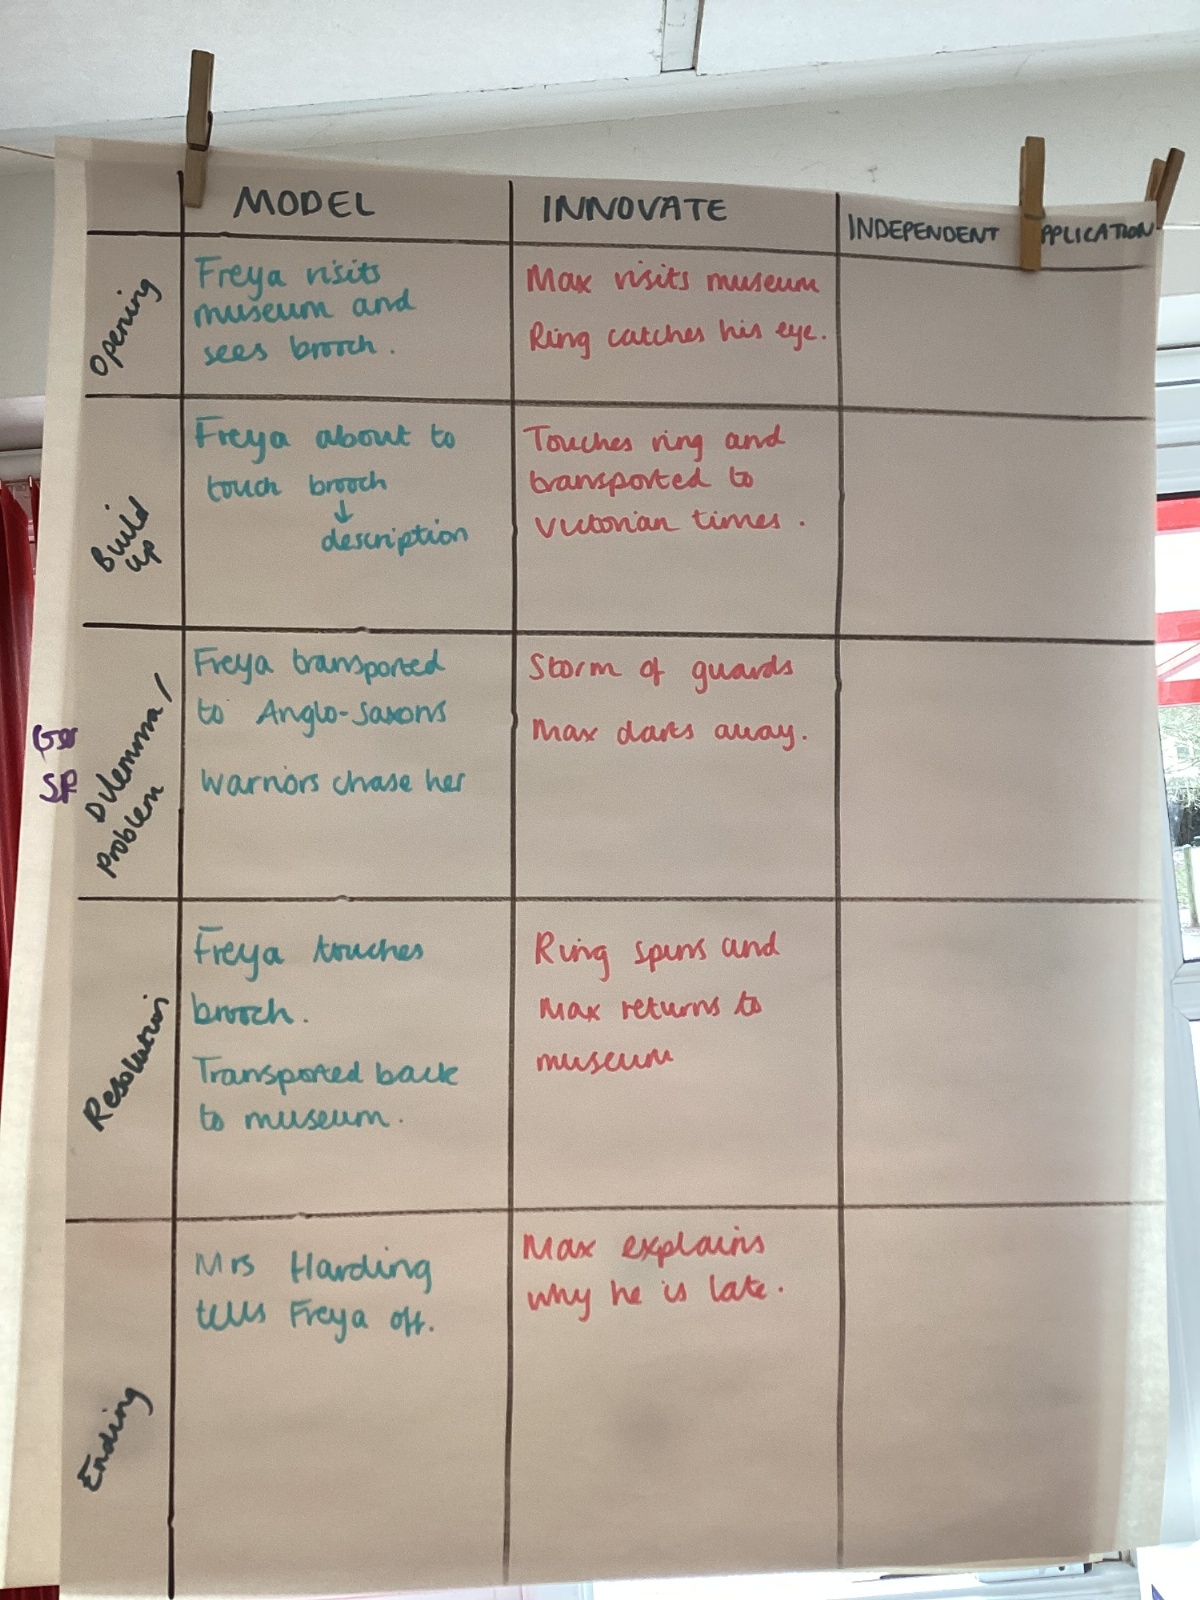 MODEL
INNOVATE
INDEPENDENT APPLICATION
Opening
Freya visits
museum and
sees brooch.
Max visits museum
Ring catches his eye.
Build
up
Freya about to
touch brooch
↓
description
Touches ring and
transported to
Victorian times.
Dilemma /
Problem
Freya transported
to Anglo-Saxons
Warriors chase her
Storm of guards
Max darts away.
SP
Resolution
Freya touches
brooch.
Transported back
to museum.
Ring spins and
Max returns to
museum
Ending
Mrs Harding
tells Freya off.
Max explains
why he is late.